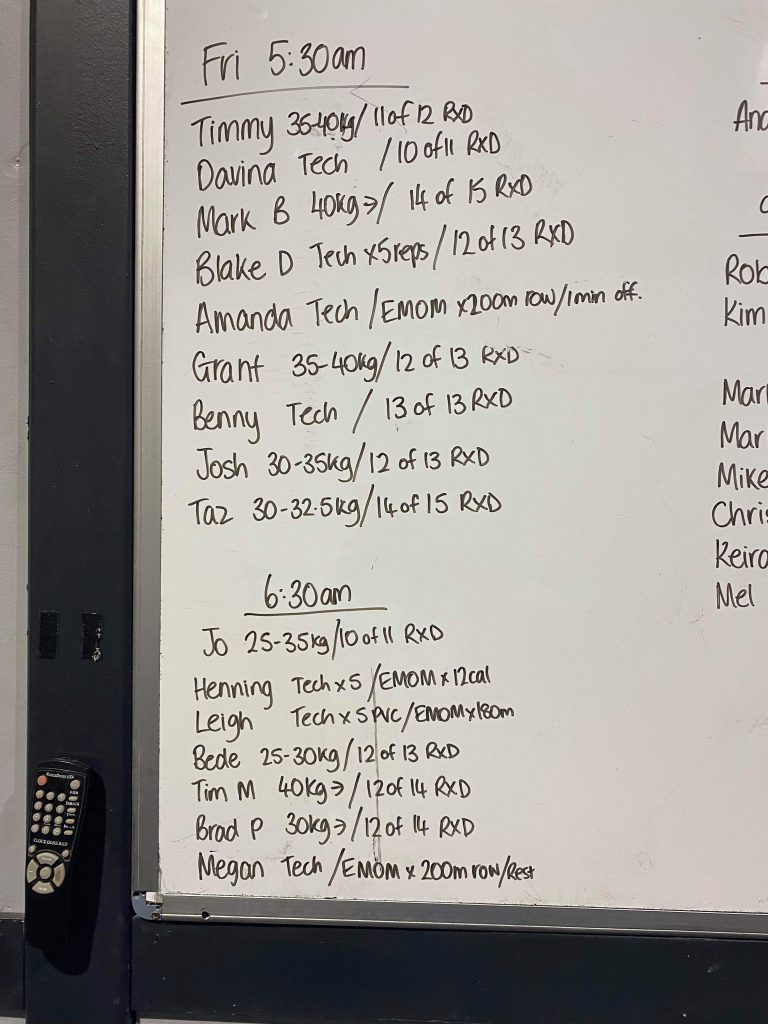 Fri 5:30am
Timmy 35-40kg/11of 12 RXD
Davina Tech /10 of 11 RXD
Mark B 40kg→/ 14 of 15 RXD
Blake D Tech x5reps/12 of 13 RXD
Amanda Tech /EMOM x200m row/1min off.
Grant 35-40kg/12 of 13 RXD
Benny Tech / 13 of 13 RXD
Josh 30-35kg/12 of 13 RXD
Taz 30-32.5kg/14 of 15 RXD
6:30am
Jo 25-35kg/10 of 11 RXD
Henning Tech x 5 /EMOM x 12cal
Leigh Tech x 5 PVC/EMOM x 180m
Bede 25-30kg/12 of 13 RXD
Tim M 40kg→/12 of 14 RXD
Brad P 30kg→/12 of 14 RXD
Megan Tech /EMOM x 200m row/Rest
And
Rob
Kim
Mar
Mar
Mike
Chris
Keiro
Mel